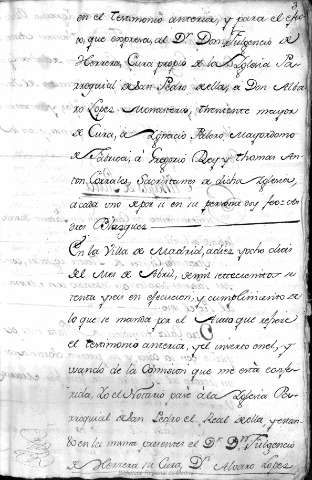 en el testimonio anterior, y para el efec
to, que expresa, al Dr. Don Fulgencio de
Herrera, Cura propio de la Iglesia Pa-
rroquial de San Pedro de ella, a Don Alba
ro Lopez Monasterio, theniente mayor
de Cura, a Ignacio Mayordomo
de Fabrica, a Gregorio Rey y Thomas An-
ton Corrales, Sacristanes de dicha Iglesia,
a cada uno de por si en su persona doy fee
Blazquez
En la Villa de Madrid, a diez y ocho dias
del Mes de Abril, de mil setecientos se
tenta y seis en execucion, y cumplimiento de
lo que se manda por el Auto que refiere
el testimonio anterior, y el inserto en el, y
usando de la Comision que me està confe-
rida, Yo el Notario pasè à la Iglesia Pa-
rroquial de San Pedro el Real de ella, y estan-
do en la misma presentes el Dr. Dn. Fulgencio
de Herrera su Cura, Dn. Alvaro Lopez